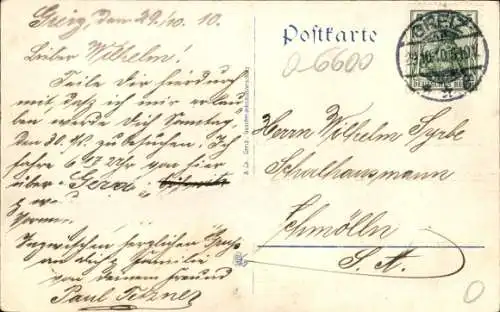 Greiz, den 29./10. 10.
Lieber Wilhelm!
Teile dir hierdurch
mit daß ich mir erlau-
ben werde Dich Sonntag,
den 30. zu besuchen. Ich
fahre 6 Uhr von hier
über Gera
Inzwischen herzlichen Gruß
an dich Familie
von deinem Freund
Paul Tetzner
Postkarte
0-6600
GREIZ
Herrn Wilhelm Syrbe
Schmölln
S. A.